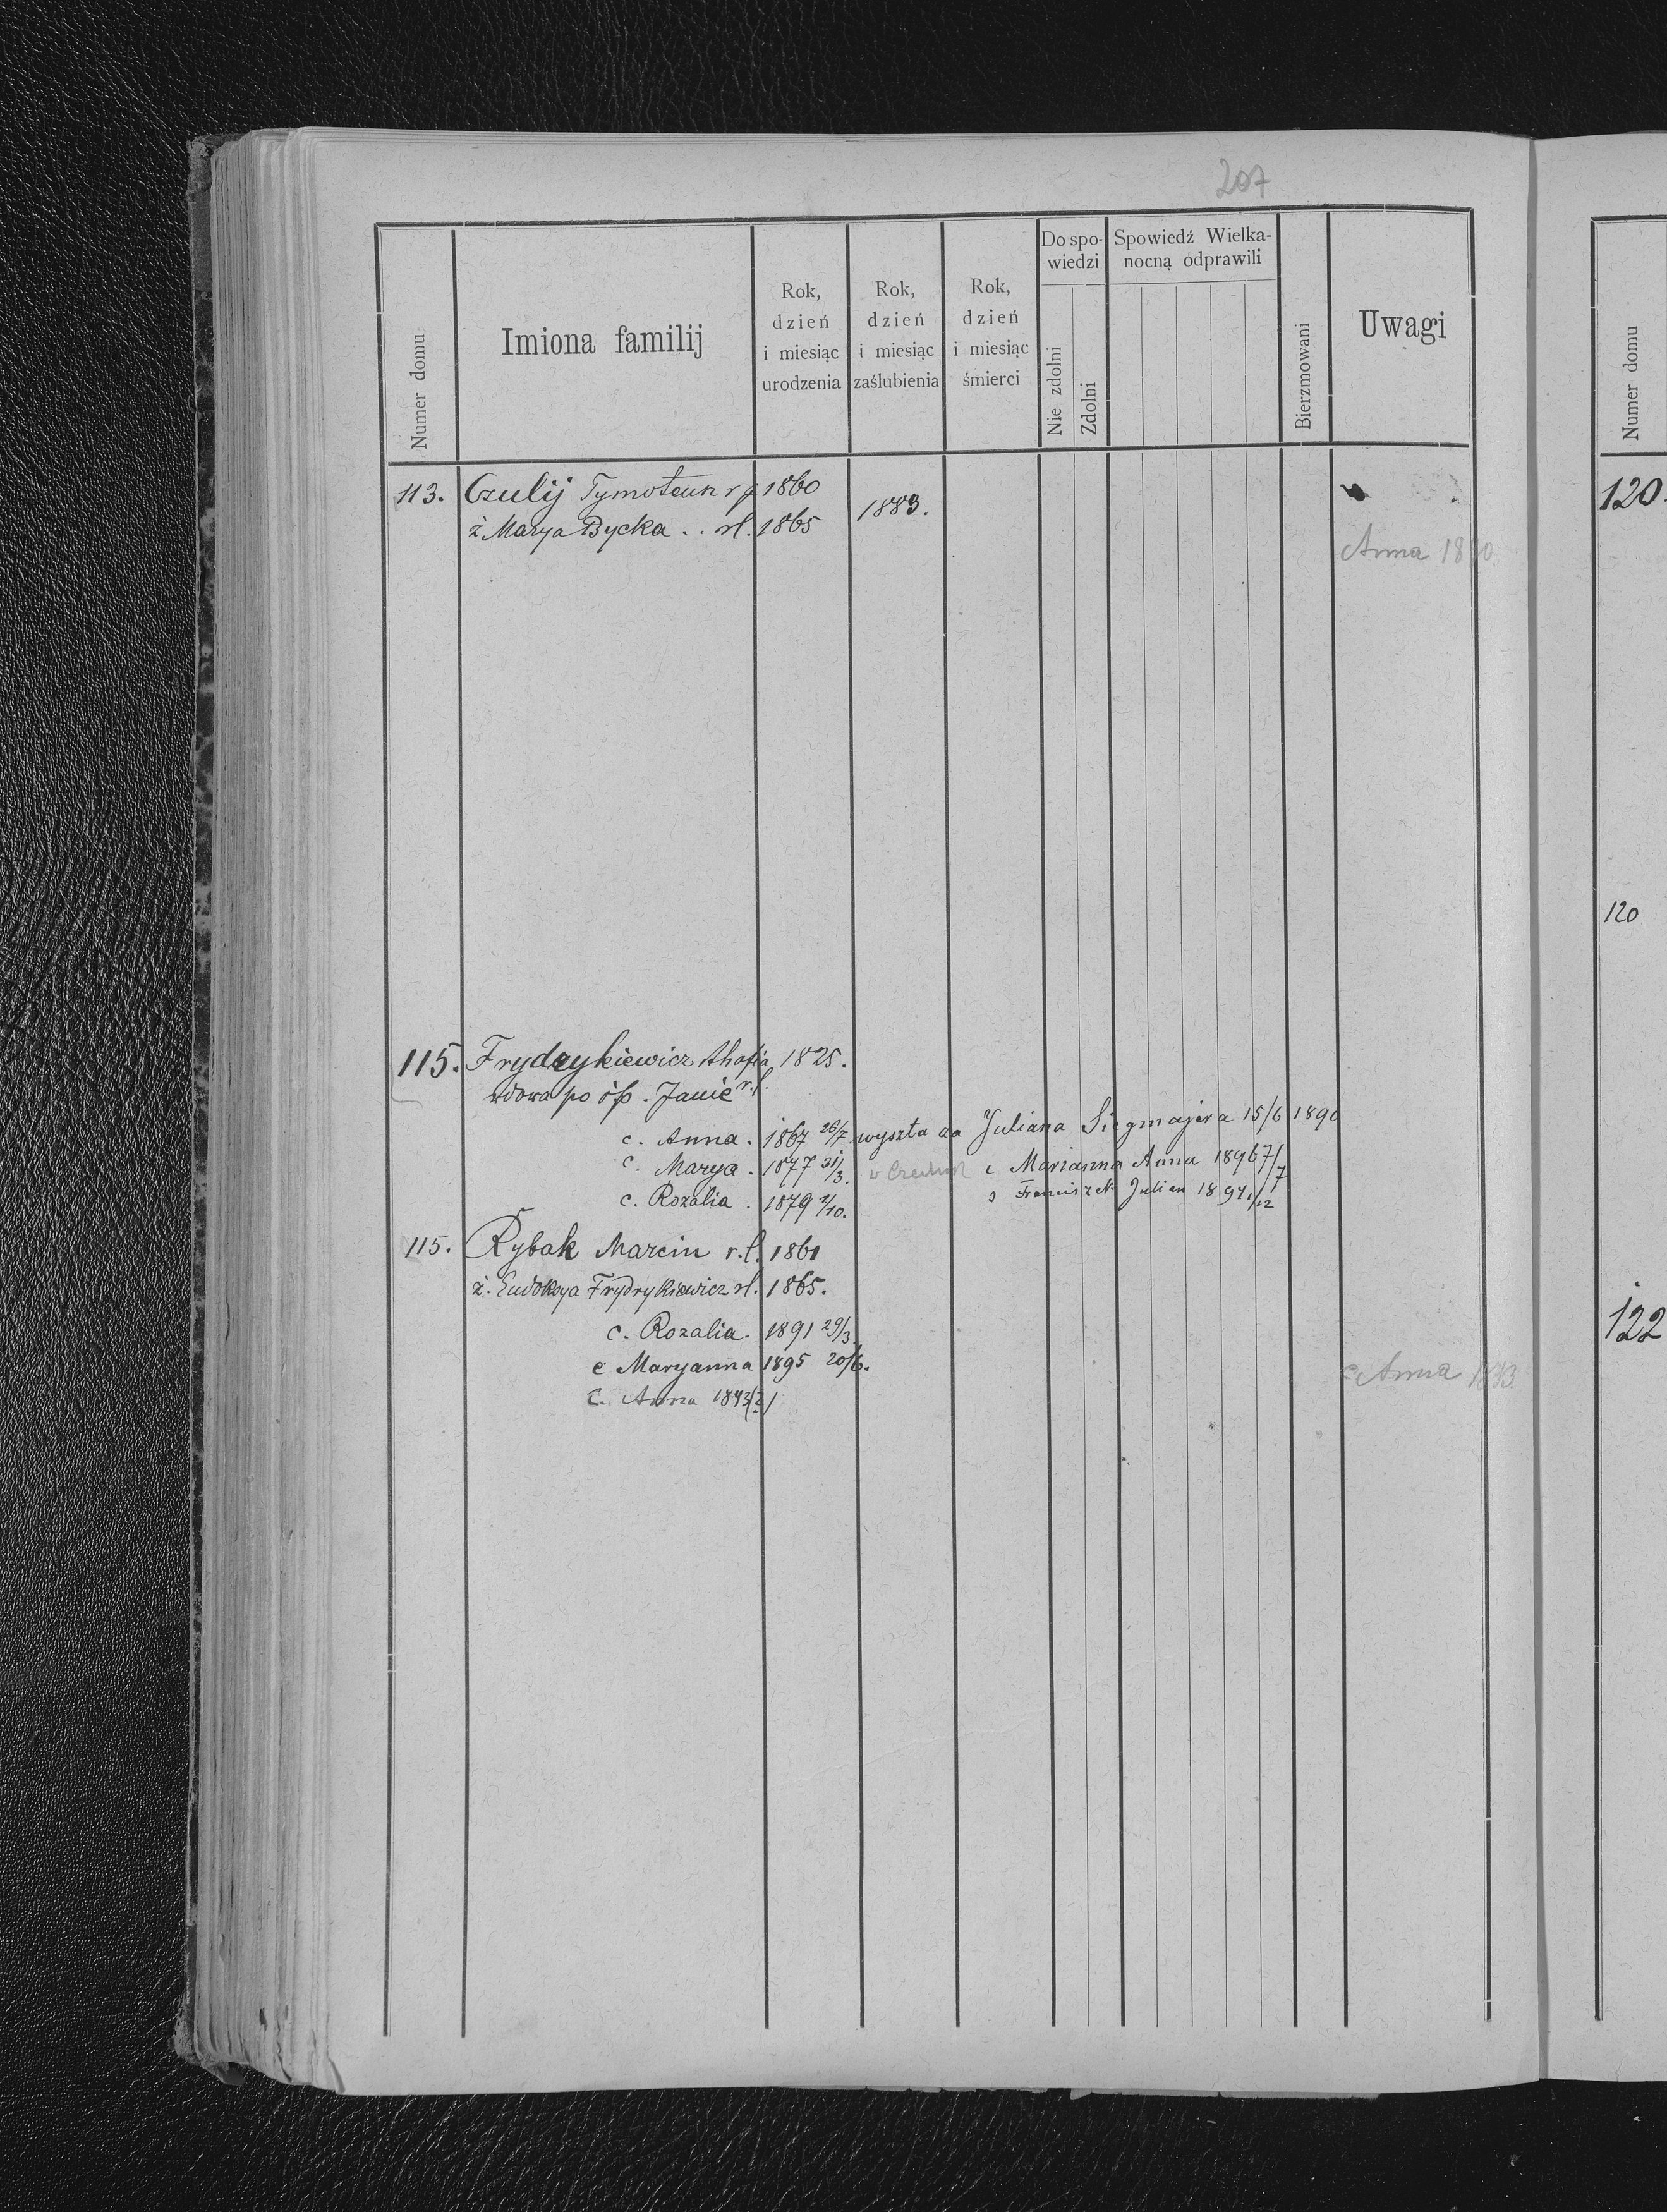 207
Numer domu
Imiona familij
Rok, dzień i miesiąc urodzenia
Rok, dzień i miesiąc zaślubienia
Rok, dzień i miesiąc śmierci
Do spowiedzi
Nie zdolni
Zdolni
Spowiedź Wielkanocną odprawili
Bierzmowani
Uwagi
Numer domu
113. Czulij 1860
ż. Marya Bycka . . rl. 1865 1883.
Anna
115. Frydrykiewicz 1825.
wdowa po śp. Janie r.l.
c. Anna . 1867 26/7. wyszła za Juliana Siegmajera 15/6 1890
c. Marya . 1877 31/3. c Marianna Anna 1896 7/7
c. Rozalia . 1879 2/10. s Franciszek Julian
115. Rybak Marcin r.l. 1861
ż. Eudoksya Frydrykiewicz rl. 1865.
c. Rozalia. 1891 29/3.
c Maryanna 1895 20/6.
c. Anna 1893(?)
c Anna 1893.
120.
120
122